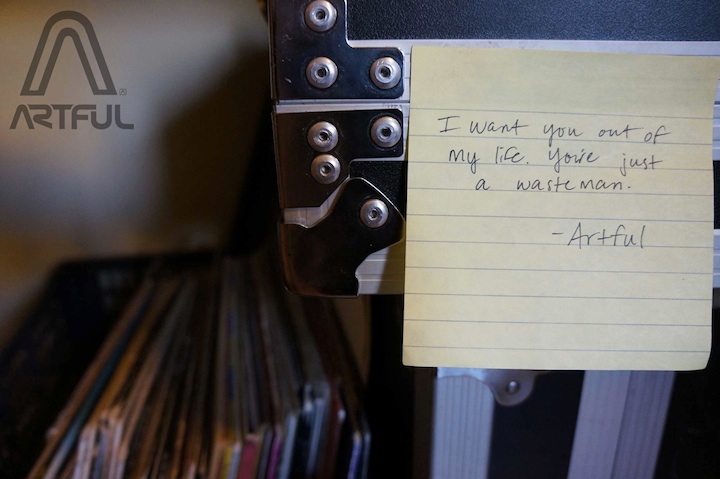 ARTFUL
I want you out of
my life. You're just
a wasteman.
-Artful